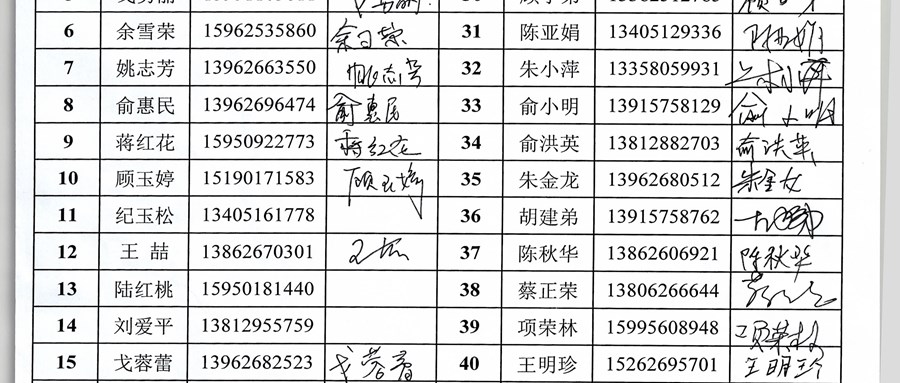 6 余雪荣 15962535860 余雪荣 31 陈亚娟 13405129336 陈亚娟
7 姚志芳 13962663550 姚志芳 32 朱小萍 13358059931 朱小萍
8 俞惠民 13962696474 俞惠民 33 俞小明 13915758129 俞小明
9 蒋红花 15950922773 蒋红花 34 俞洪英 13812882703 俞洪英
10 顾玉婷 15190171583 顾玉婷 35 朱金龙 13962680512 朱金龙
11 纪玉松 13405161778 36 胡建弟 13915758762
12 王喆 13862670301 王喆 37 陈秋华 13862606921 陈秋华
13 陆红桃 15950181440 38 蔡正荣 13806266644
14 刘爱平 13812955759 39 项荣林 15995608948 项荣林
15 戈蓉蕾 13962682523 戈蓉蕾 40 王明珍 15262695701 王明珍